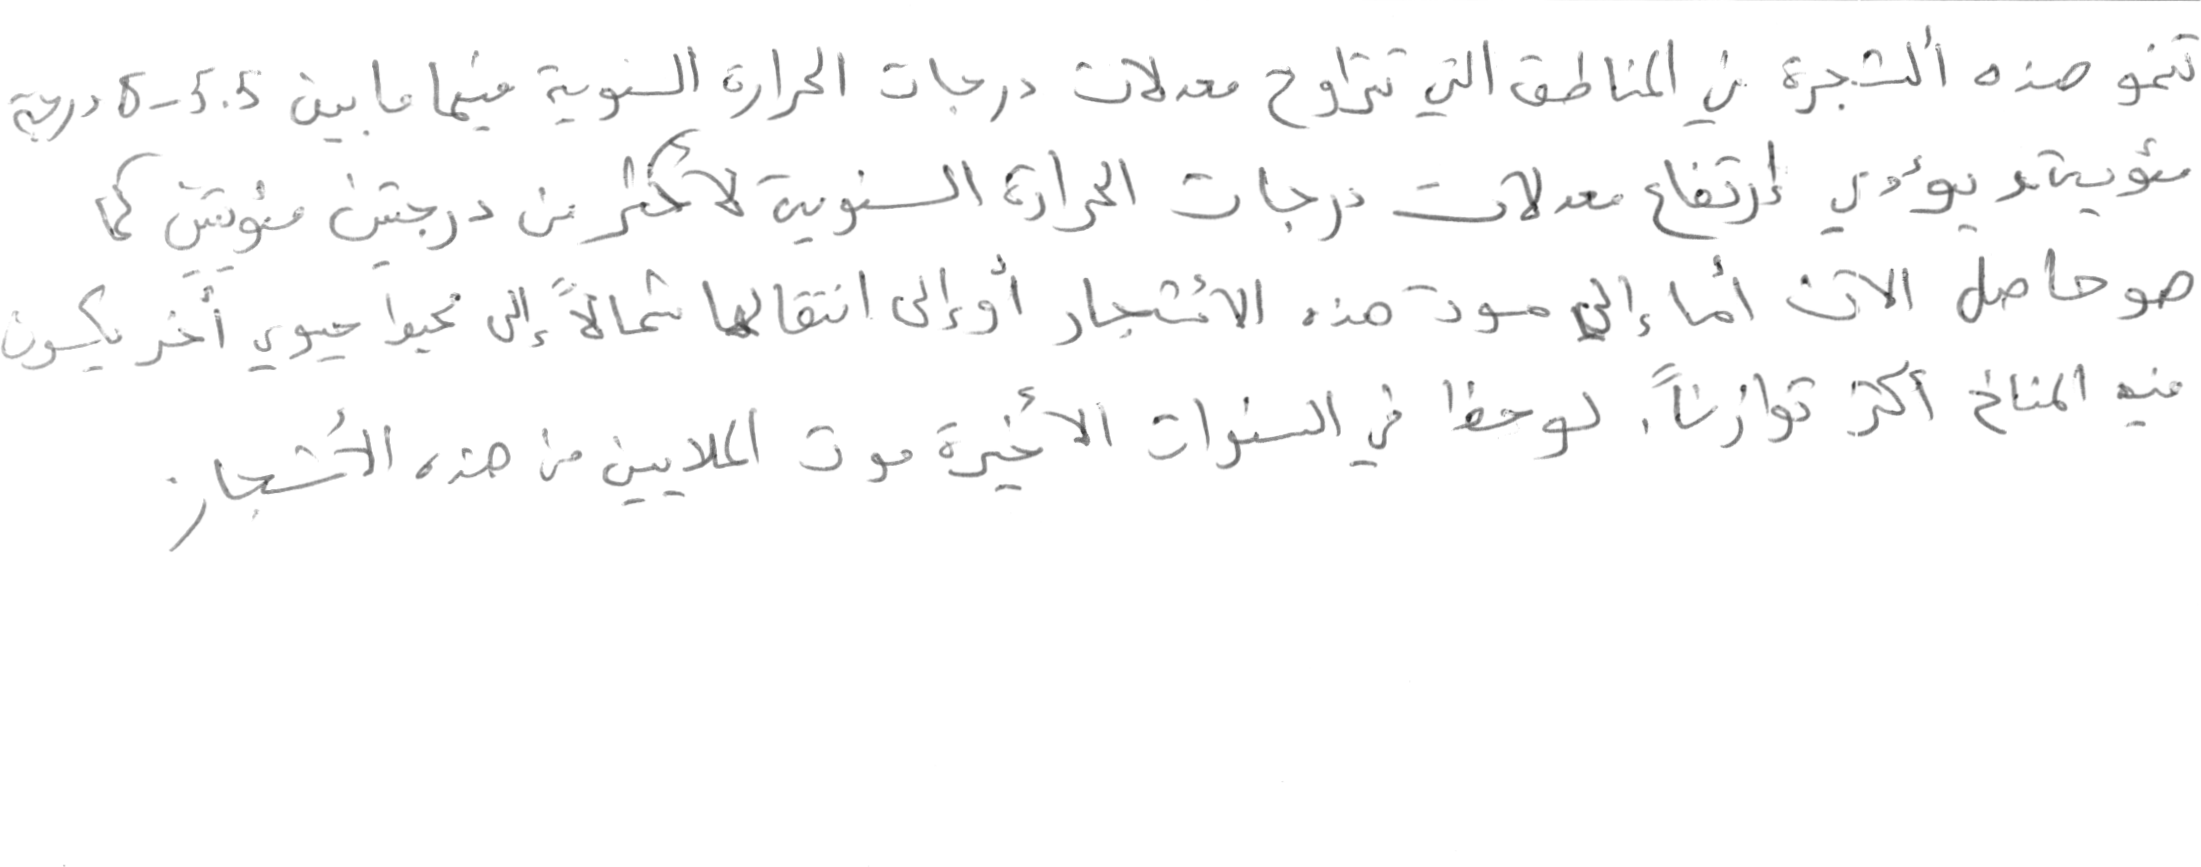 تنمو هذه ألشجرة في المناطق التي تتراوح معدلات درجات الحرارة السنوية فيما ما بين 5.5-6 درجة
مئوية و يؤدي إرتفاع معدلات درجات الحرارة السنوية لأكثر من درجتين مئويتين كما
هو حاصل الآن أما إلى موت هذه الأشجار أو إلى انتقالها شمالاً إلى محيط حيوي أخر يكون
فيه المناخ أكثر توازناً. لوحظ في السنوات الأخيرة موت الملايين من هذه الأشجار.